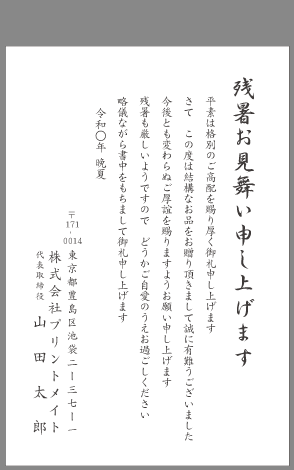 残暑お見舞い申し上げます
平素は格別のご高配を賜り厚く御礼申し上げます
さて　この度は結構なお品をお贈り頂きまして誠に有難うございました
今後とも変わらぬご厚誼を賜りますようお願い申し上げます
残暑も厳しいようですので　どうかご自愛のうえお過ごしください
略儀ながら書中をもちまして御礼申し上げます
令和〇年 晩夏
〒171-0014
東京都豊島区池袋二ー三七ー一
株式会社プリントメイト
代表取締役 山田太郎